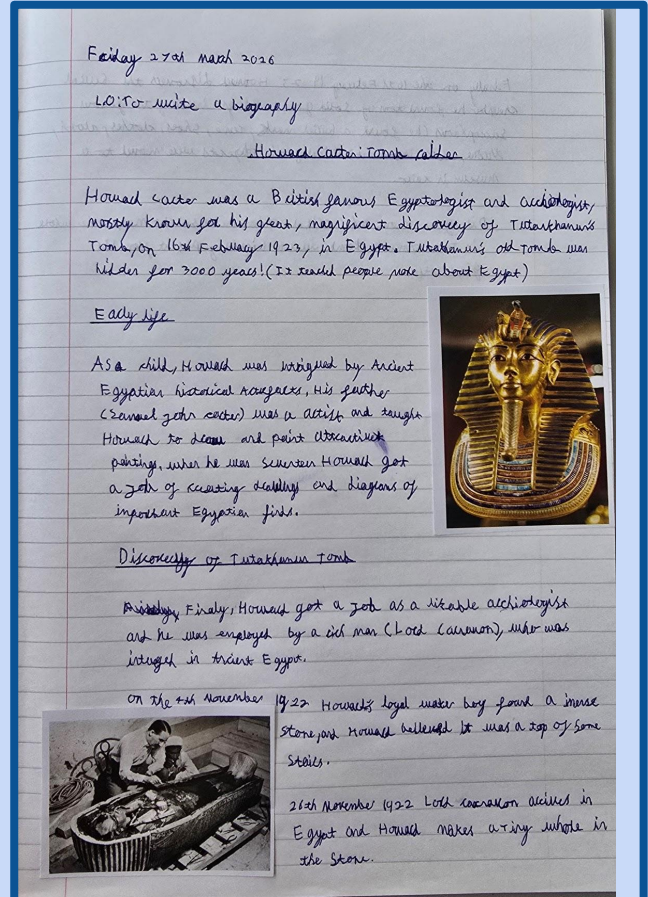 Friday 27th march 2026
L.O: To write a biography
Howard Carter: Tomb raider
Howard carter was a British famous Egyptologist and archiologist,
mostly known for his great, magnificent discovery of Tutankhamun's
Tomb, on 16th February 1923, in Egypt. Tutakhamun's old Tomb was
hidden for 3000 years! (It teached people more about Egypt)
Early life
As a child, Howard was intrigued by Ancient
Egyptian historical Artefacts, His father
(Samuel John carter) was a artist and taught
Howard to draw and paint attractive
paintings. when he was seventen Howard got
a Job of recreating drawings and diagrams of
important Egyptian finds.
Discovery of Tutakhamun Tomb
Finaly, Howard got a Job as a likable archiologist
and he was employed by a rich man (Lord                ), who was
in Ancient Egypt.
on the 4th November 1922 Howard's loyal water boy found a imense
Stone, and Howard believed It was a top of Some
Stairs.
26th November 1922 Lord               arrives in
Egypt and Howard makes a tiny whole in
the Stone.